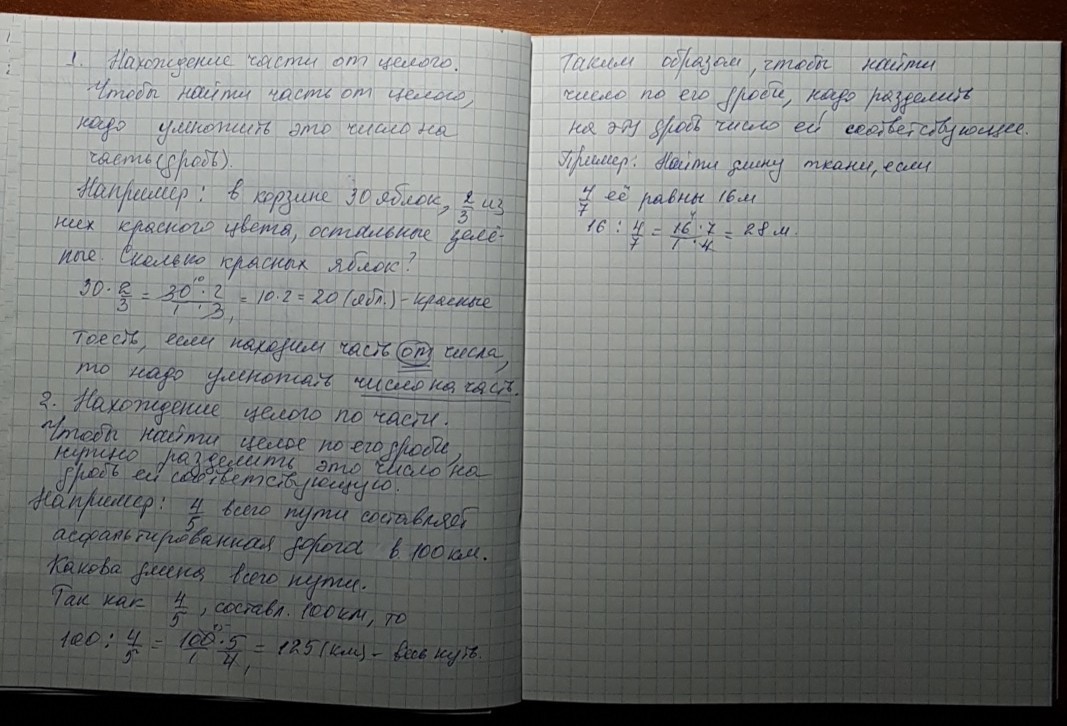 1. Нахождение части от целого.
Чтобы найти часть от целого,
надо умножить это число на
часть (дробь).
Например: в корзине 30 яблок, 2/3 из
них красного цвета, остальные зелё-
ные. Сколько красных яблок?
30 · 2/3 = 30 · 2 / 1 · 3 = 10 · 2 = 20 (ябл.) – красные
тоесть, если находим часть от числа,
то надо умножать число на часть.
2. Нахождение целого по части.
Чтобы найти целое по его дроби,
нужно разделить это число на
дробь ей соответствующую.
Например: 4/5 всего пути составляет
асфальтированная дорога в 100 км.
Какова длина всего пути.
Так как 4/5, составл. 100 км, то
100 : 4/5 = 100 · 5 / 1 · 4 = 125 (км) – весь путь.
Таким образом, чтобы найти
число по его дроби, надо разделить
на эту дробь число ей соответствующее.
Пример: Найти длину ткани, если
4/7 её равны 16 м
16 : 4/7 = 16 · 7 / 1 · 4 = 28 м.